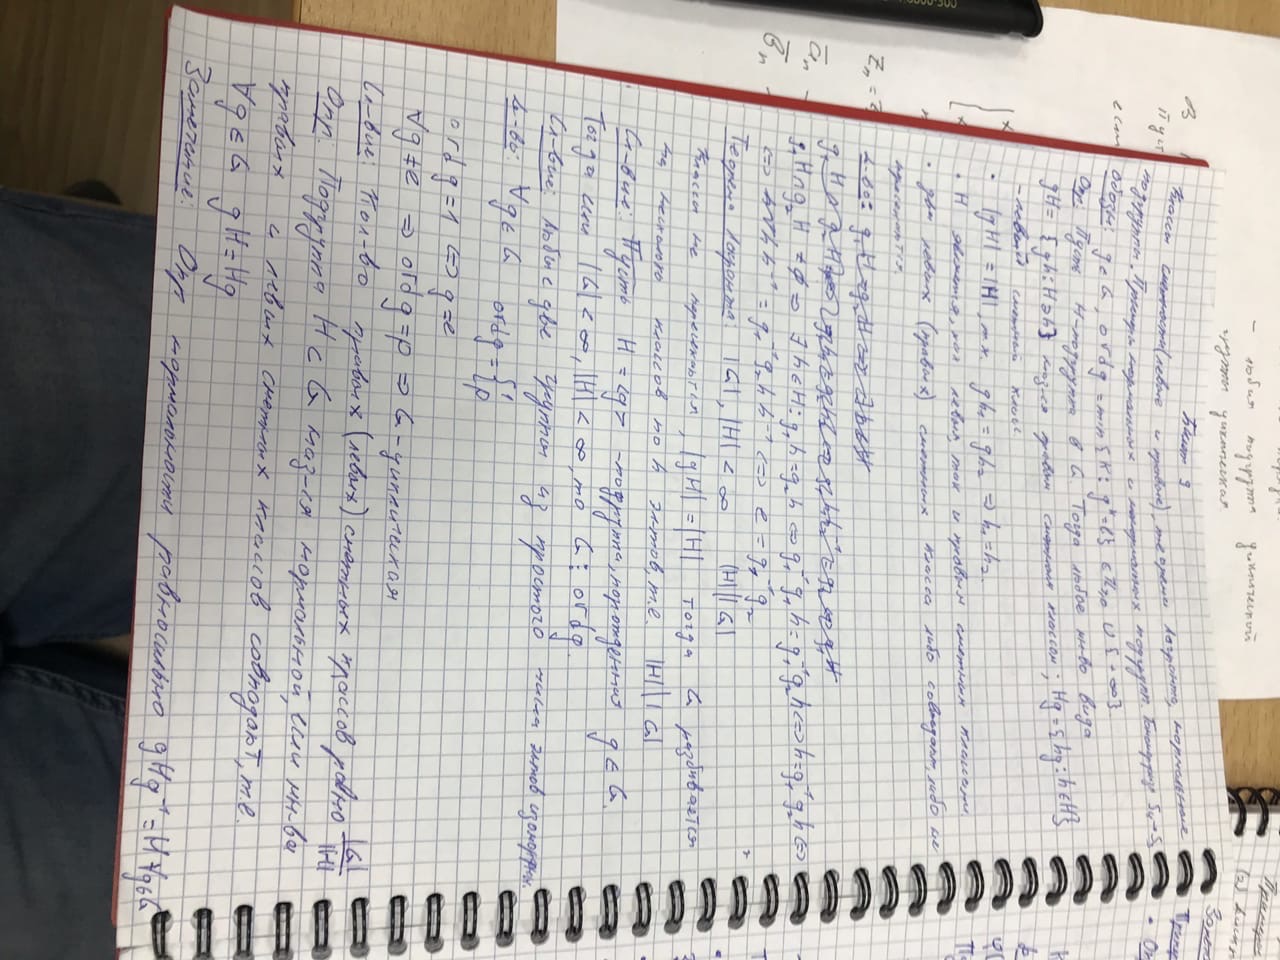 – любая подгруппа циклической
группы циклическая.
Билет 9
Классы смежности (левые и правые), теорема Лагранжа, нормальные
подгруппы. Примеры нормальных и ненормальных подгрупп. Гомоморфизм S₄→S₃
Обозн: g∈G, ord g = min{k: gᵏ=e} ∪{+∞}.
Опр: Пусть H-подгруппа в G. Тогда любое мн-во вида
gH = {gh: H∋h} наз-ся правым смежным классом; Hg = {hg: h∈H}
– левый смежный класс.
· |gH| = |H|, т.к. gh₁ = gh₂ ⇒ h₁=h₂.
· H является, как левым, так и правым смежным классами.
· два левых (правых) смежных класса либо совпадают, либо не
пересекаются.
Д-во:
g₁H∩g₂H ≠ ∅ ⇒ ∃h∈H: g₁h=g₂h ⇔ g₁⁻¹g₁h=g₁⁻¹g₂h ⇔ h=g₁⁻¹g₂h ⇔
⇔ hh⁻¹ = g₁⁻¹g₂hh⁻¹ ⇔ e = g₁⁻¹g₂
Теорема Лагранжа: |G|, |H| < ∞ |H| | |G|
Классы не пересекаются, |gH| = |H| тогда G разбивается
на несколько классов по h элтов, т.е. |H| | |G|
Сл-вие: Пусть H = <g> – подгруппа, порожденная g∈G.
Тогда если |G| < ∞, |H| < ∞, то G ⋮ ord g.
Сл-вие: Любые две группы из простого числа элтов изоморфны.
Д-во: ∀g∈G ord g = { 1
p
ord g = 1 ⇔ g=e
∀g≠e ⇒ ord g = p ⇒ G – циклическая
Сл-вие: Кол-во правых (левых) смежных классов равно |G|/|H|
Опр: Подгруппа H⊂G наз-ся нормальной, если мн-ва
правых и левых смежных классов совподают, т.е.
∀g∈G gH=Hg
Замечание: Опр нормальности равносильно gHg⁻¹=H ∀g∈G